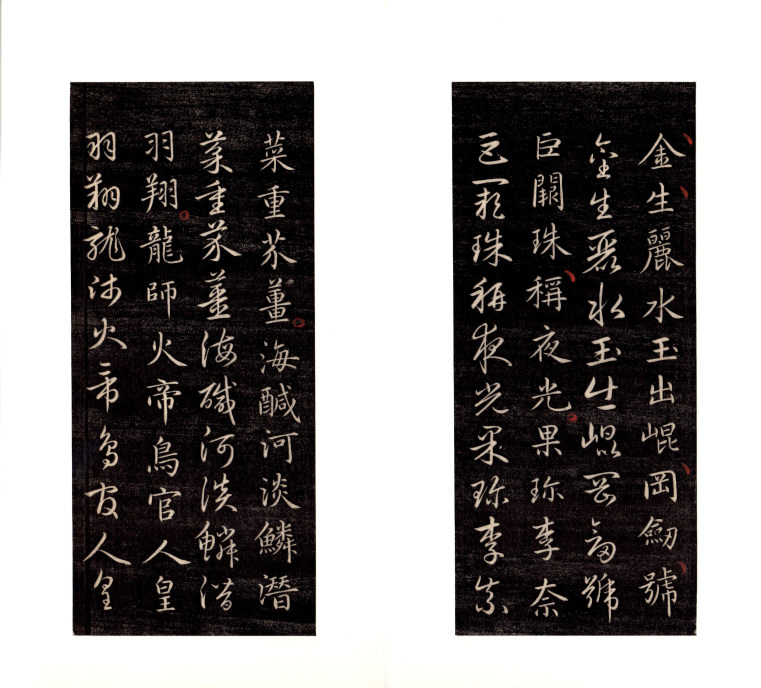 金生麗水玉出崐岡劒號
金生麗水玉出崐岡劒號
巨闕珠稱夜光果珎李奈
巨闕珠稱夜光果珎李奈
菜重芥薑海醎河淡鱗潛
菜重芥薑海醎河淡鱗潛
羽翔龍師火帝鳥官人皇
羽翔龍師火帝鳥官人皇